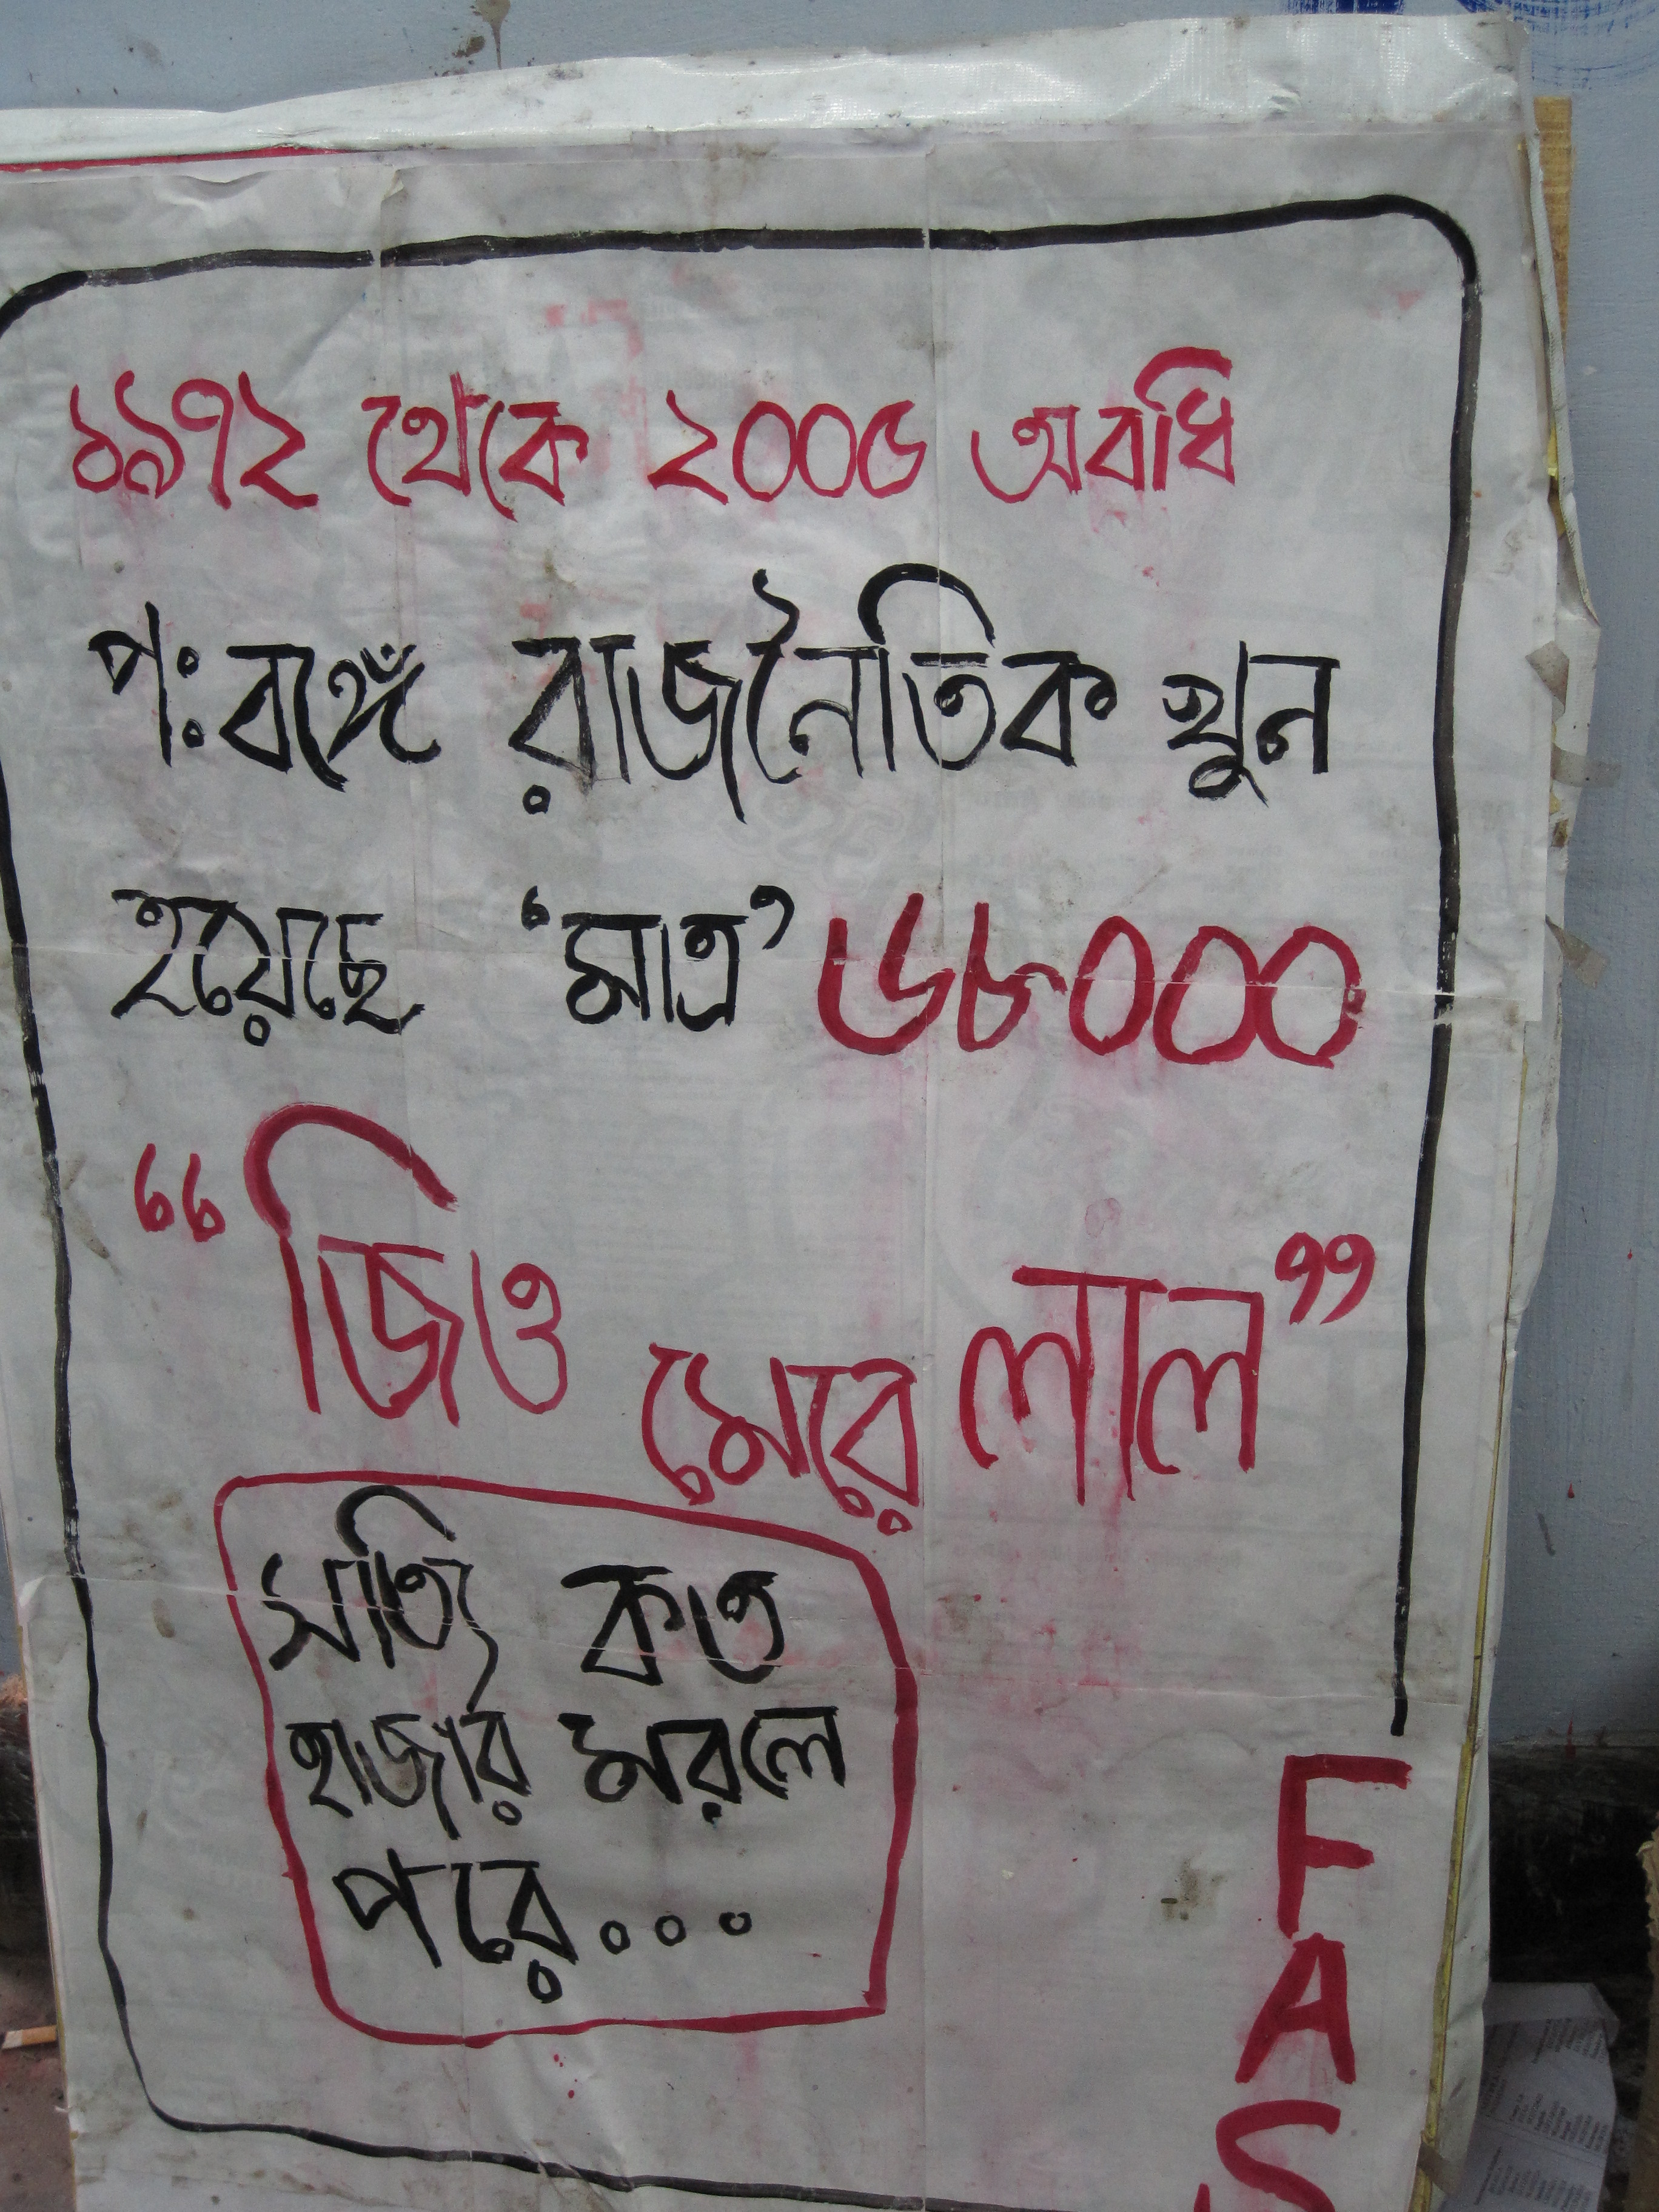 ১৯৭২ থেকে ২০০৬ অবধি
পঃবঙ্গেঁ রাজনৈতিক খুন
হয়েছে ‘মাত্র’ ৬৮০০০
“জিও মেরে লাল”
সত্যি কত
হাজার মরলে
পরে...
FAS